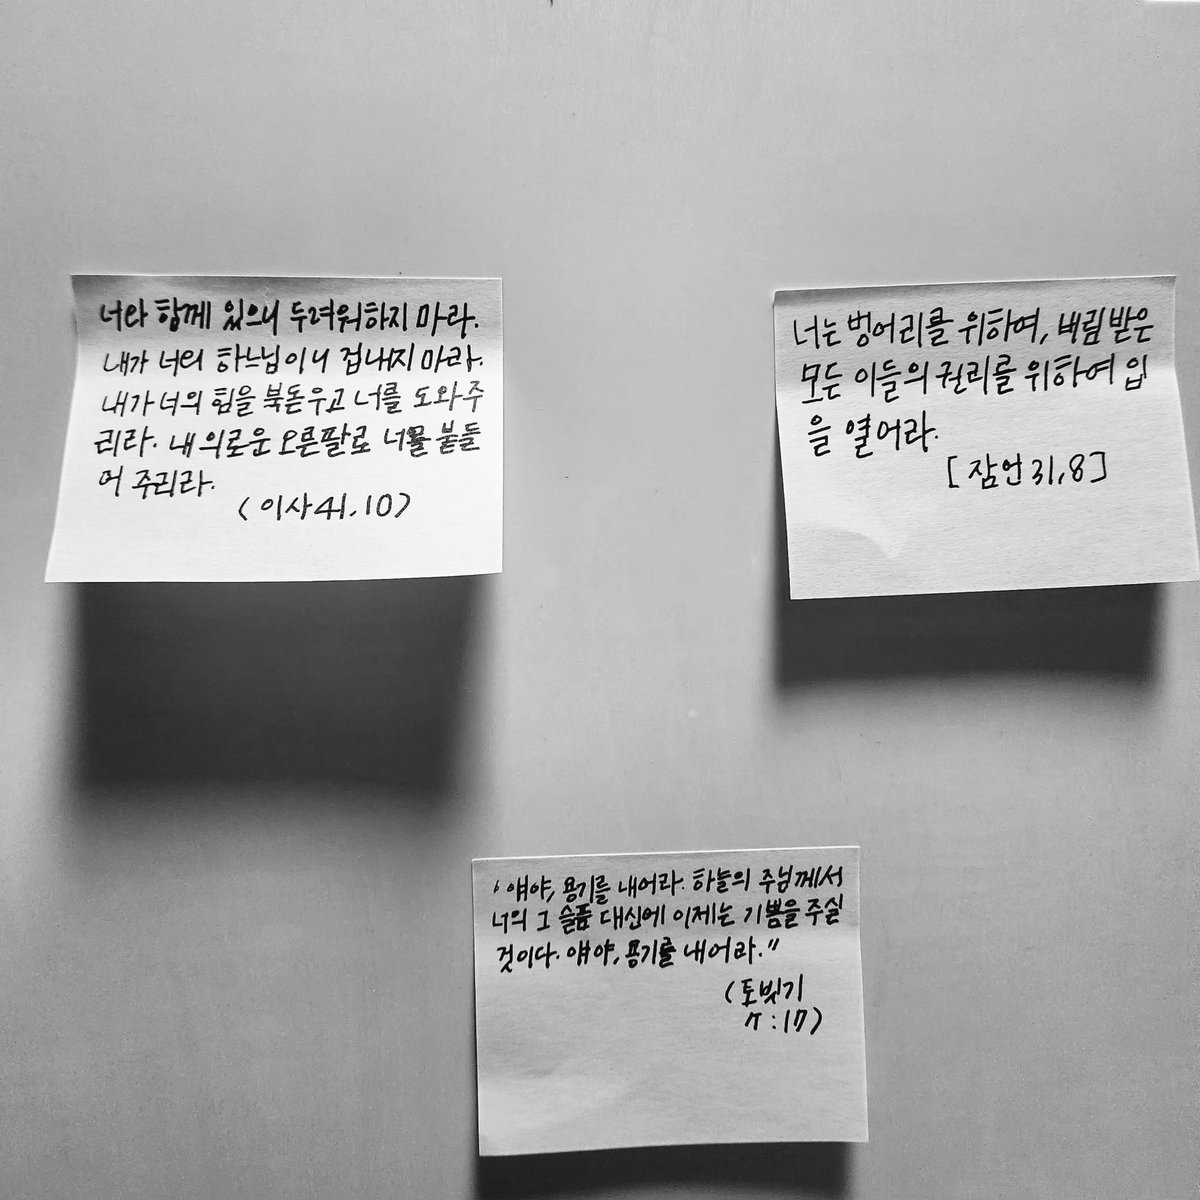 너와 함께 있으니 두려워하지 마라.
내가 너의 하느님이니 겁내지 마라.
내가 너의 힘을 북돋우고 너를 도와주
리라. 내 의로운 오른팔로 너를 붙들
어 주리라.
(이사 41.10)
너는 벙어리를 위하여, 버림받은
모든 이들의 권리를 위하여 입
을 열어라.
[잠언 31,8]
"얘야, 용기를 내어라. 하늘의 주님께서
너의 그 슬픔 대신에 이제는 기쁨을 주실
것이다. 얘야, 용기를 내어라."
(토빗기
7:17)